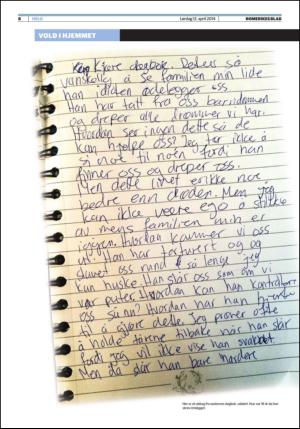 8 HELG Lørdag 12. april 2014 ROMERIKES BLAD
VOLD I HJEMMET
Kjære dagbok. Det er så
vanskelig å se familien min lide
han idioten ødelegger oss
Han har tatt fra oss barndommen
og dreper alle drømmer vi har.
Hvordan ser ingen dette så de
kan hjelpe oss? Jeg tør ikke å
si noe til noen fordi han
finner oss og dreper oss.
Men dette livet er ikke noe
bedre enn døden. Men jeg
kan ikke være ego å stikke
av mens familien min er
igjen. Hvordan kommer vi oss
ut. Han har torturert og og
slavet oss rundt så lenge jeg
kan huske. Han slår oss som om vi
var puter. Hvordan kan han kontrollere
oss så nu? Hvordan har han
til å gjøre dette. Jeg prøver ofte
å holde tårene tilbake når han slår
fordi jeg vil ikke vise han svakhet
Men da slår han bare hardere
Her er et utdrag fra søsterens dagbok, udatert. Hun var 16 år da hun